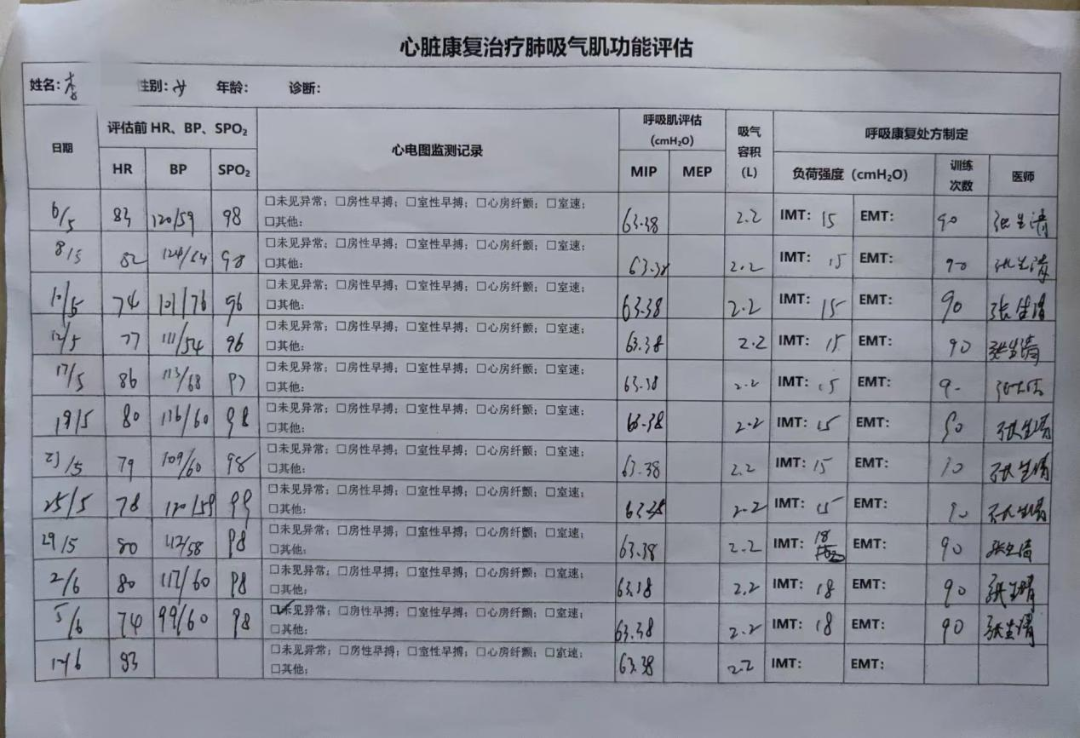 心脏康复治疗肺吸气肌功能评估
姓名：李 性别：女 年龄： 诊断：
日期 评估前 HR、BP、SPO₂ 心电图监测记录 呼吸肌评估 (cmH₂O) 吸气容积 (L) 呼吸康复处方制定
HR BP SPO₂ MIP MEP 负荷强度（cmH₂O） 训练次数 医师
6/5 83 120/59 98 □未见异常；□房性早搏；□室性早搏；□心房纤颤；□室速； 63.38 2.2 IMT: 15 EMT: 90 张生清
□其他：
8/5 82 124/64 98 □未见异常；□房性早搏；□室性早搏；□心房纤颤；□室速； 63.38 2.2 IMT: 15 EMT: 90 张生清
□其他：
10/5 74 101/76 96 □未见异常；□房性早搏；□室性早搏；□心房纤颤；□室速； 63.38 2.2 IMT: 15 EMT: 90 张生清
□其他：
12/5 77 111/54 96 □未见异常；□房性早搏；□室性早搏；□心房纤颤；□室速； 63.38 2.2 IMT: 15 EMT: 90 张生清
□其他：
17/5 86 113/68 97 □未见异常；□房性早搏；□室性早搏；□心房纤颤；□室速； 63.38 2.2 IMT: 15 EMT:
□其他：
19/5 80 116/60 98 □未见异常；□房性早搏；□室性早搏；□心房纤颤；□室速； 63.38 2.2 IMT: 15 EMT: 90 张生清
□其他：
23/5 79 109/60 98 □未见异常；□房性早搏；□室性早搏；□心房纤颤；□室速； 63.38 2.2 IMT: 15 EMT: 90 张生清
□其他：
25/5 78 120/59 99 □未见异常；□房性早搏；□室性早搏；□心房纤颤；□室速； 63.38 2.2 IMT: 15 EMT: 90 张生清
□其他：
29/5 80 112/58 98 □未见异常；□房性早搏；□室性早搏；□心房纤颤；□室速； 63.38 2.2 IMT: 18 EMT: 90 张生清
□其他：
2/6 80 117/60 98 □未见异常；□房性早搏；□室性早搏；□心房纤颤；□室速； 63.38 2.2 IMT: 18 EMT: 90 张生清
□其他：
5/6 74 99/60 98 ☑未见异常；□房性早搏；□室性早搏；□心房纤颤；□室速； 63.38 2.2 IMT: 18 EMT: 90 张生清
□其他：
83 □未见异常；□房性早搏；□室性早搏；□心房纤颤；□室速； 63.38 2.2 IMT: EMT:
□其他：